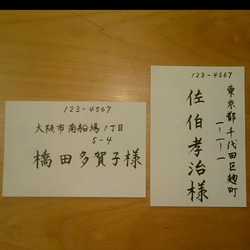 123-4567
大阪市南船場1丁目
5-4
橋田多賀子様
123-4567
東京都千代田区麹町
1-1-1
佐伯孝治様